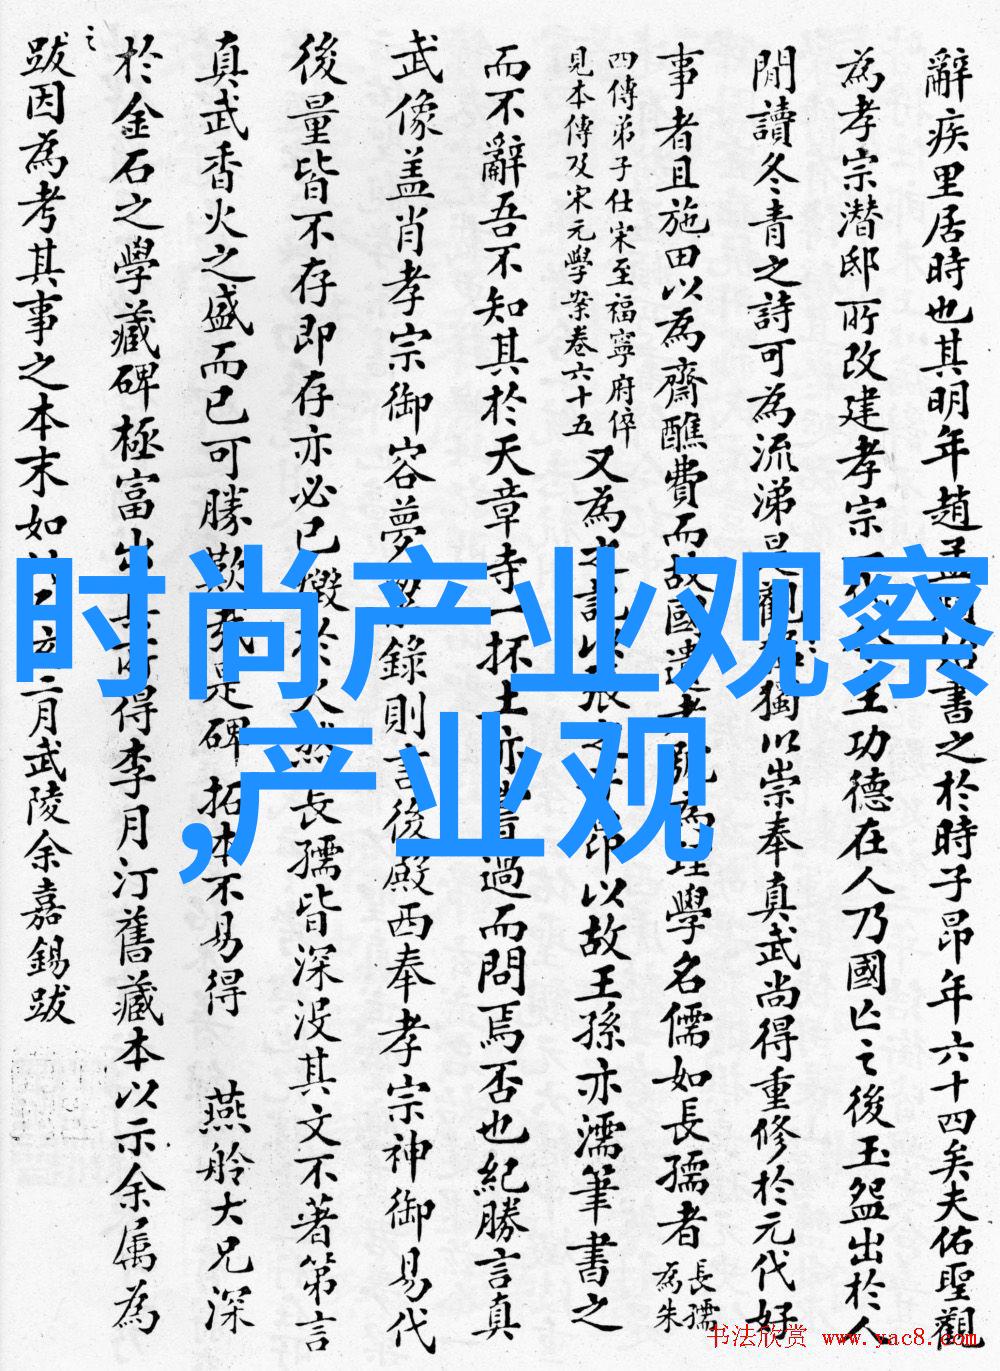 辭疾里居時也其明年趙孟書之於時子昂年六十四矣夫佑聖觀
為孝宗潜邸所改建孝宗主功德在人乃國亡之後玉盌出於人
閒讀冬青之詩可為流涕是觀獨以崇奉真武尚得重修於元代好
事者且施田以為齋醮費而故國遺老號為理學名儒如長孺者長孺為朱
四傳弟子仕宋至福寧府倅
見本傳及宋元學案卷六十五
又為之記以張之子昂以故王孫亦濡筆書之
而不辭吾不知其於天章寺一抔土亦嘗過而問焉否也紀勝言真
武像盖肖孝宗御容夢粱錄則言後殿西奉孝宗神御易代
後量皆不存即存亦必已燬於火然長孺皆深没其文不著第言
真武香火之盛而已可勝歎哉是碑拓本不易得 燕舲大兄深
於金石之學藏碑極富出其所得李月汀舊藏本以示余属為
之
跋因為考其事之本末如二月武陵余嘉錫跋
时尚产业观察
,产业观
书法欣赏 www.yac8.com